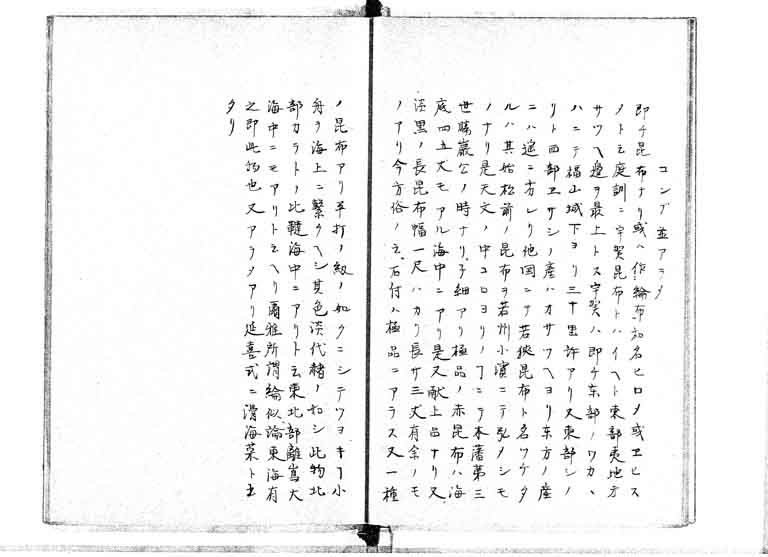 コンブ並アラタ
即チ昆布ナリ或ハ作綸布和名ヒロメ或ヱヒス
メト云庭訓ニ宇賀昆布トハイヘト東部夷地方
サツヘ邊ヲ最上トス宇賀ハ即チ东部ノワカヽ
ハニテ福山城下ヨリ三十里許アリ又東部シノ
リト西部ヱサシノ産ハカサツヘヨリ东方ノ産
ニハ遥ニ劣レリ他国ニテ若狹昆布ト名ツケタ
ルハ其始松前ノ昆布ヲ若州小濱ニテ弘メシモ
ノナリ是天文ノ中コロヨリノヿニテ本藩第三
世勝巖公ノ時ナリ子細アリ極品ノ赤昆布ハ海
底四五丈モアル海中ニアリ是又献上品ナリ又
淡黒ノ長昆布幅一尺ハカリ長サ三丈有余ノモ
ノアリ今方俗ノ云石付ハ極品ニアラス又一種
ノ昆布アリ平打ノ紐ノ如クニシテツヨキヿ小
舟ヲ海上ニ繋クヘシ其色淡代赭ノ如シ此物北
部カラトノ北韃海中ニアリト云東北部離嶌大
海中ニモアリト云ヘリ爾雅所謂綸似論東海有
之即此物也又アラメアリ延喜式ニ滑海菜ト出
タリ